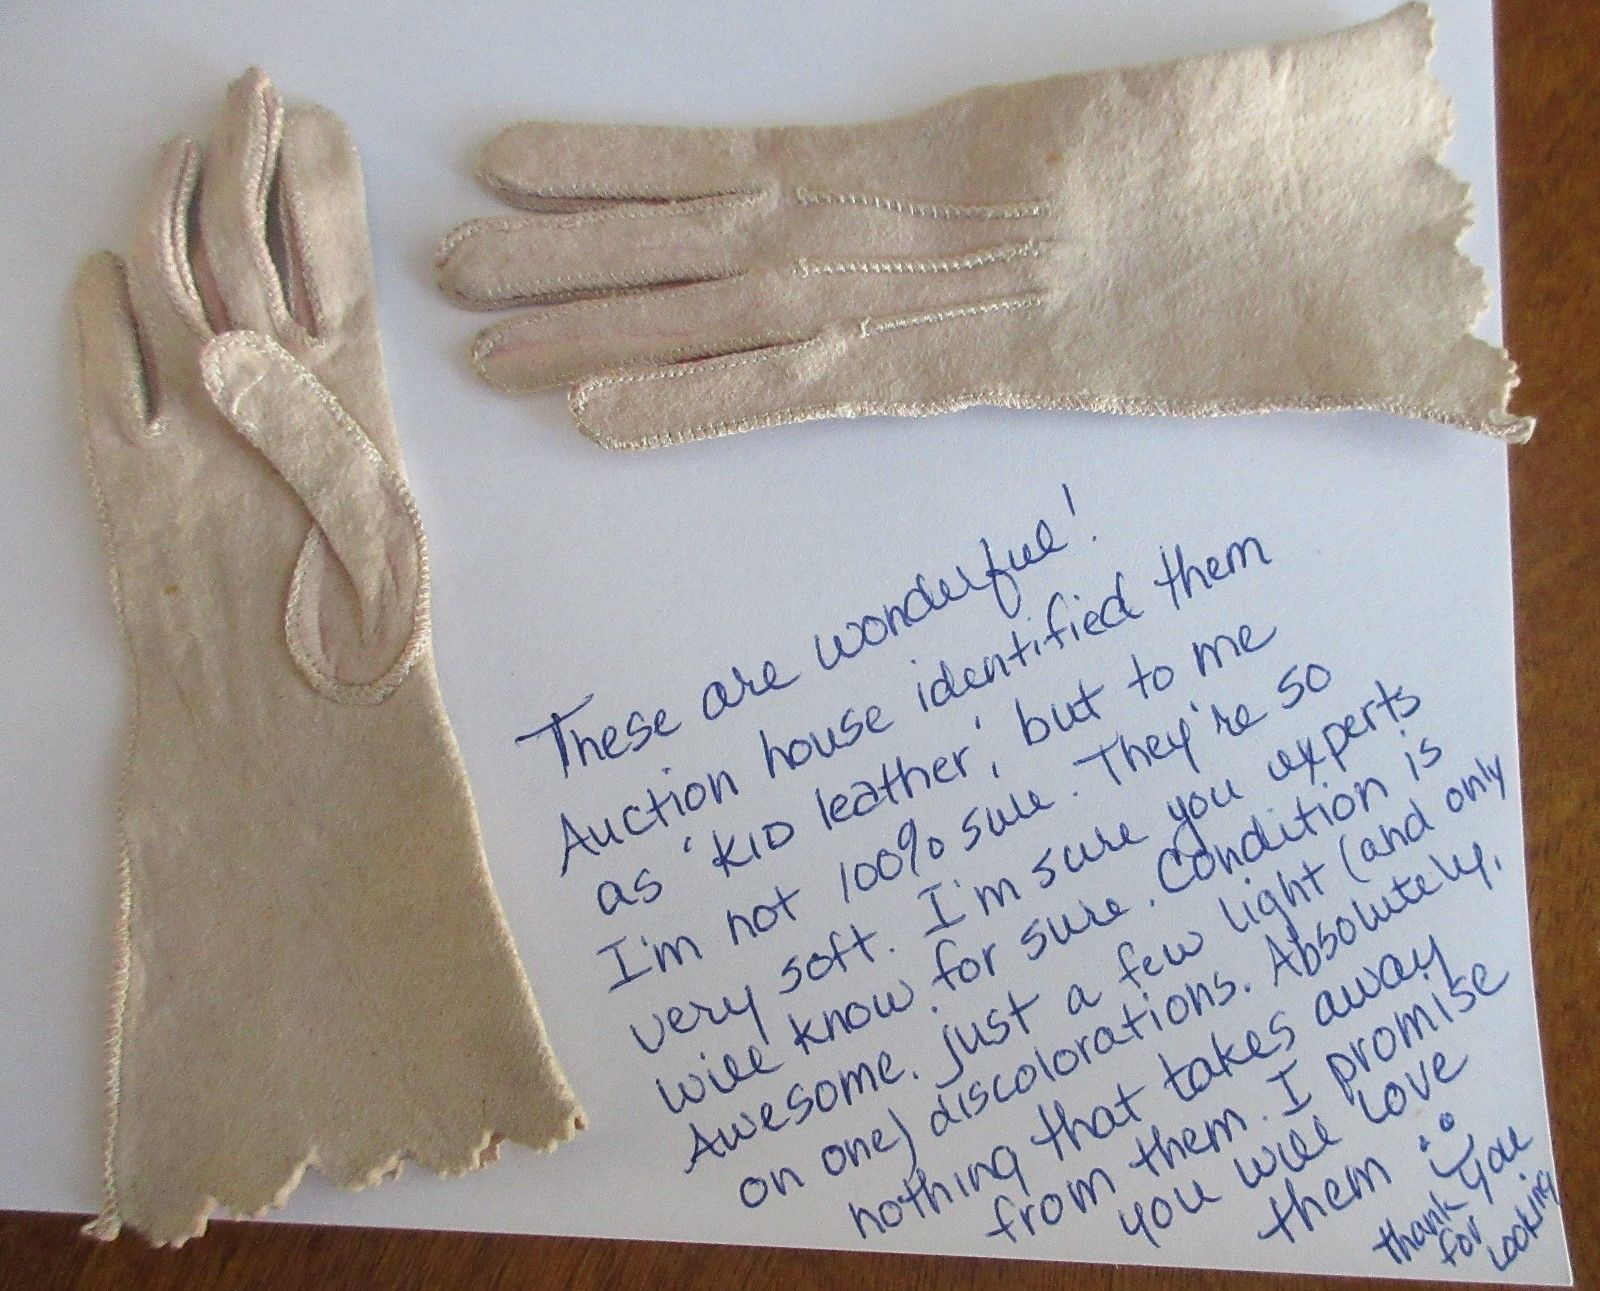 These are wonderful!
Auction house identified them
as 'KID leather', but to me
I'm not 100% sure. They're so
very soft. I'm sure you experts
will know for sure. Condition is
Awesome. just a few light (and only
on one) discolorations. Absolutely,
nothing that takes away
from them. I promise
you will love
them
thank you
for
looking